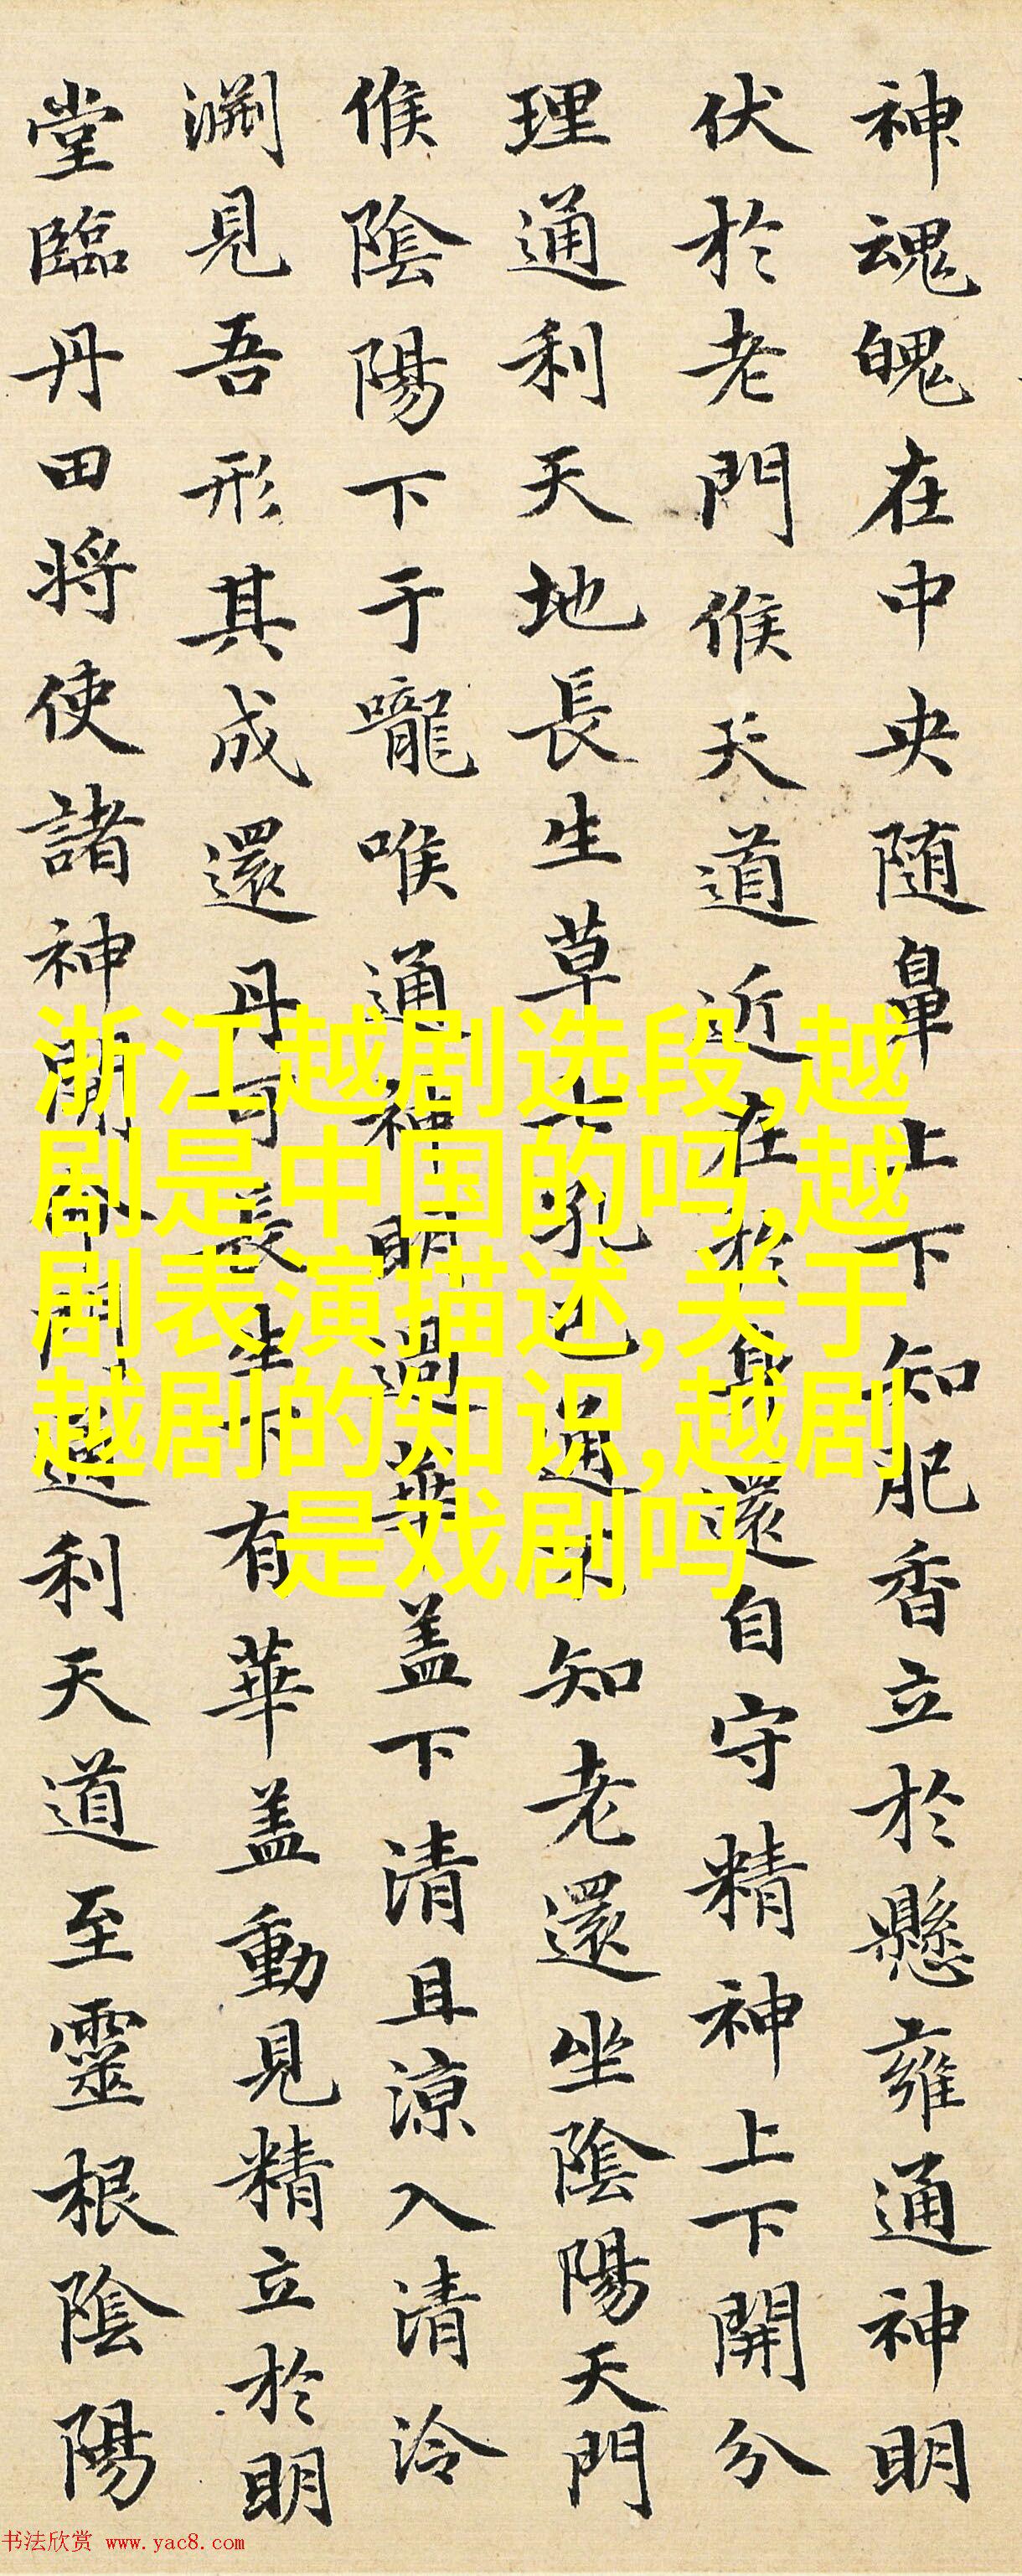 神魂魄在中央随鼻上下知肥香立於懸雍通神明
伏於老門候天道近在於身還自守精神上下開分
理通利天地長生草七孔已通不知老還坐陰陽天門
候陰陽下于嚨喉通神明過華盖下清且涼入清泠
淵見吾形其成還丹可長生下有華盖動見精立於明
堂臨丹田将使諸神開命門通利天道至靈根陰陽
浙江越剧选段,越
剧是中国的吗,越
剧表演描述,关于
越剧的知识,越剧
是戏剧吗
书法欣赏 www.yac8.com